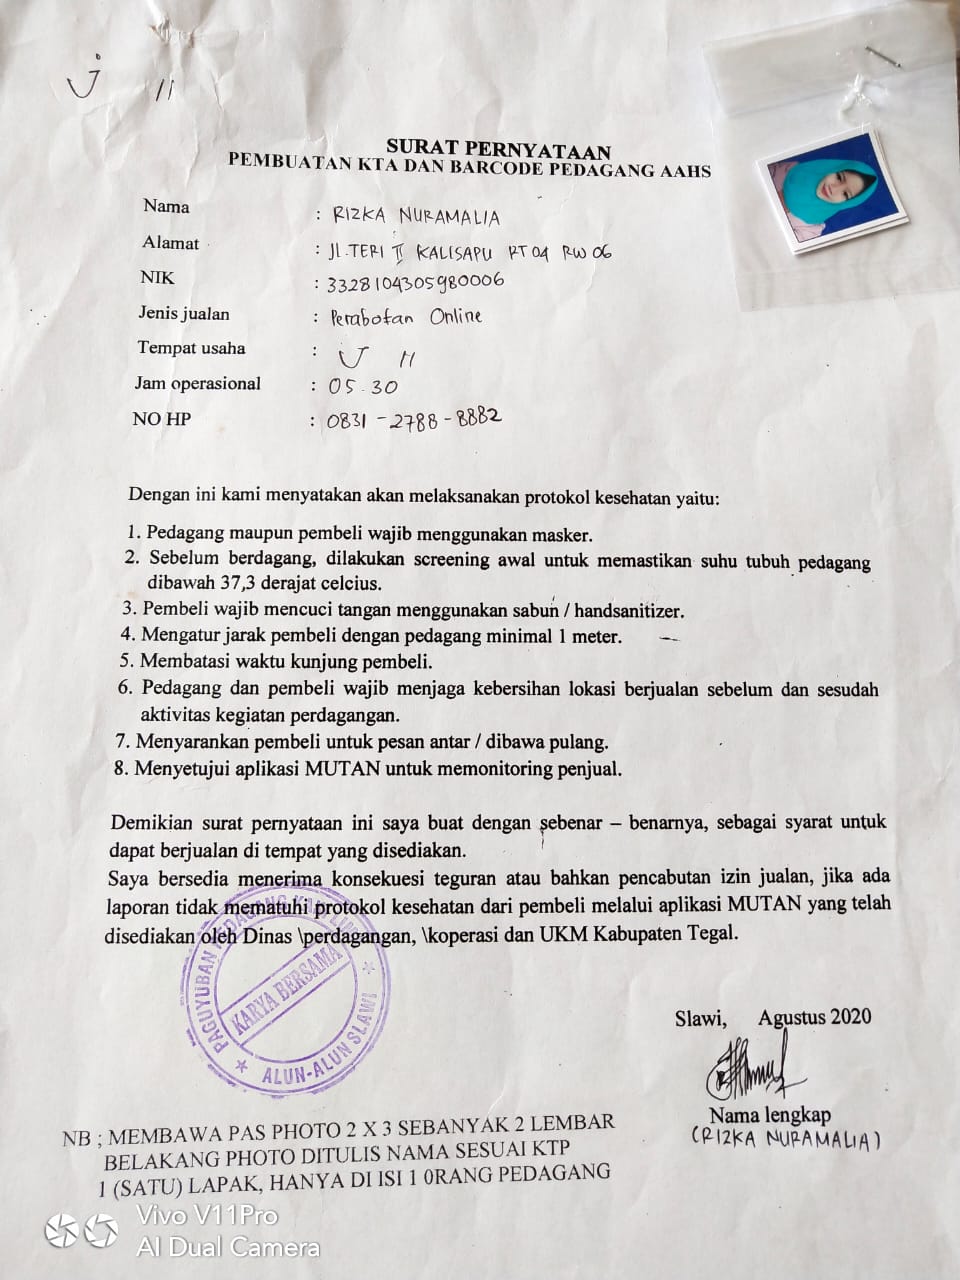 U 11
SURAT PERNYATAAN
PEMBUATAN KTA DAN BARCODE PEDAGANG AAHS
Nama : RIZKA NURAMALIA
Alamat : Jl. TERI II KALISAPU RT 04 RW 06
NIK : 3328104305980006
Jenis jualan : Perabotan Online
Tempat usaha : U 11
Jam operasional : 05.30
NO HP : 0831-2788-8882
Dengan ini kami menyatakan akan melaksanakan protokol kesehatan yaitu:
1. Pedagang maupun pembeli wajib menggunakan masker.
2. Sebelum berdagang, dilakukan screening awal untuk memastikan suhu tubuh pedagang
dibawah 37,3 derajat celcius.
3. Pembeli wajib mencuci tangan menggunakan sabun / handsanitizer.
4. Mengatur jarak pembeli dengan pedagang minimal 1 meter.
5. Membatasi waktu kunjung pembeli.
6. Pedagang dan pembeli wajib menjaga kebersihan lokasi berjualan sebelum dan sesudah
aktivitas kegiatan perdagangan.
7. Menyarankan pembeli untuk pesan antar / dibawa pulang.
8. Menyetujui aplikasi MUTAN untuk memonitoring penjual.
Demikian surat pernyataan ini saya buat dengan sebenar – benarnya, sebagai syarat untuk
dapat berjualan di tempat yang disediakan.
Saya bersedia menerima konsekuesi teguran atau bahkan pencabutan izin jualan, jika ada
laporan tidak mematuhi protokol kesehatan dari pembeli melalui aplikasi MUTAN yang telah
disediakan oleh Dinas \perdagangan, \koperasi dan UKM Kabupaten Tegal.
PAGUYUBAN PEDAGANG KAKI LIMA
KARYA BERSAMA
ALUN-ALUN SLAWI
Slawi, Agustus 2020
Nama lengkap
(RIZKA NURAMALIA)
NB ; MEMBAWA PAS PHOTO 2 X 3 SEBANYAK 2 LEMBAR
BELAKANG PHOTO DITULIS NAMA SESUAI KTP
1 (SATU) LAPAK, HANYA DI ISI 1 0RANG PEDAGANG
Vivo V11Pro
AI Dual Camera